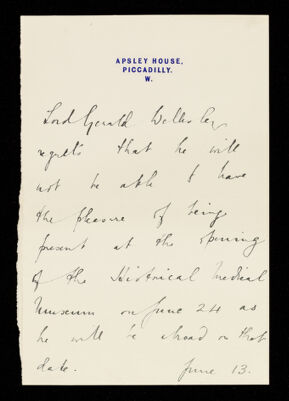 APSLEY HOUSE,
PICCADILLY.
W.
Lord Gerald Wellesley
regrets that he will
not be able to have
the pleasure of being
present at the opening
of the Historical Medical
Museum on June 24 as
he will be abroad on that
date. June 13.